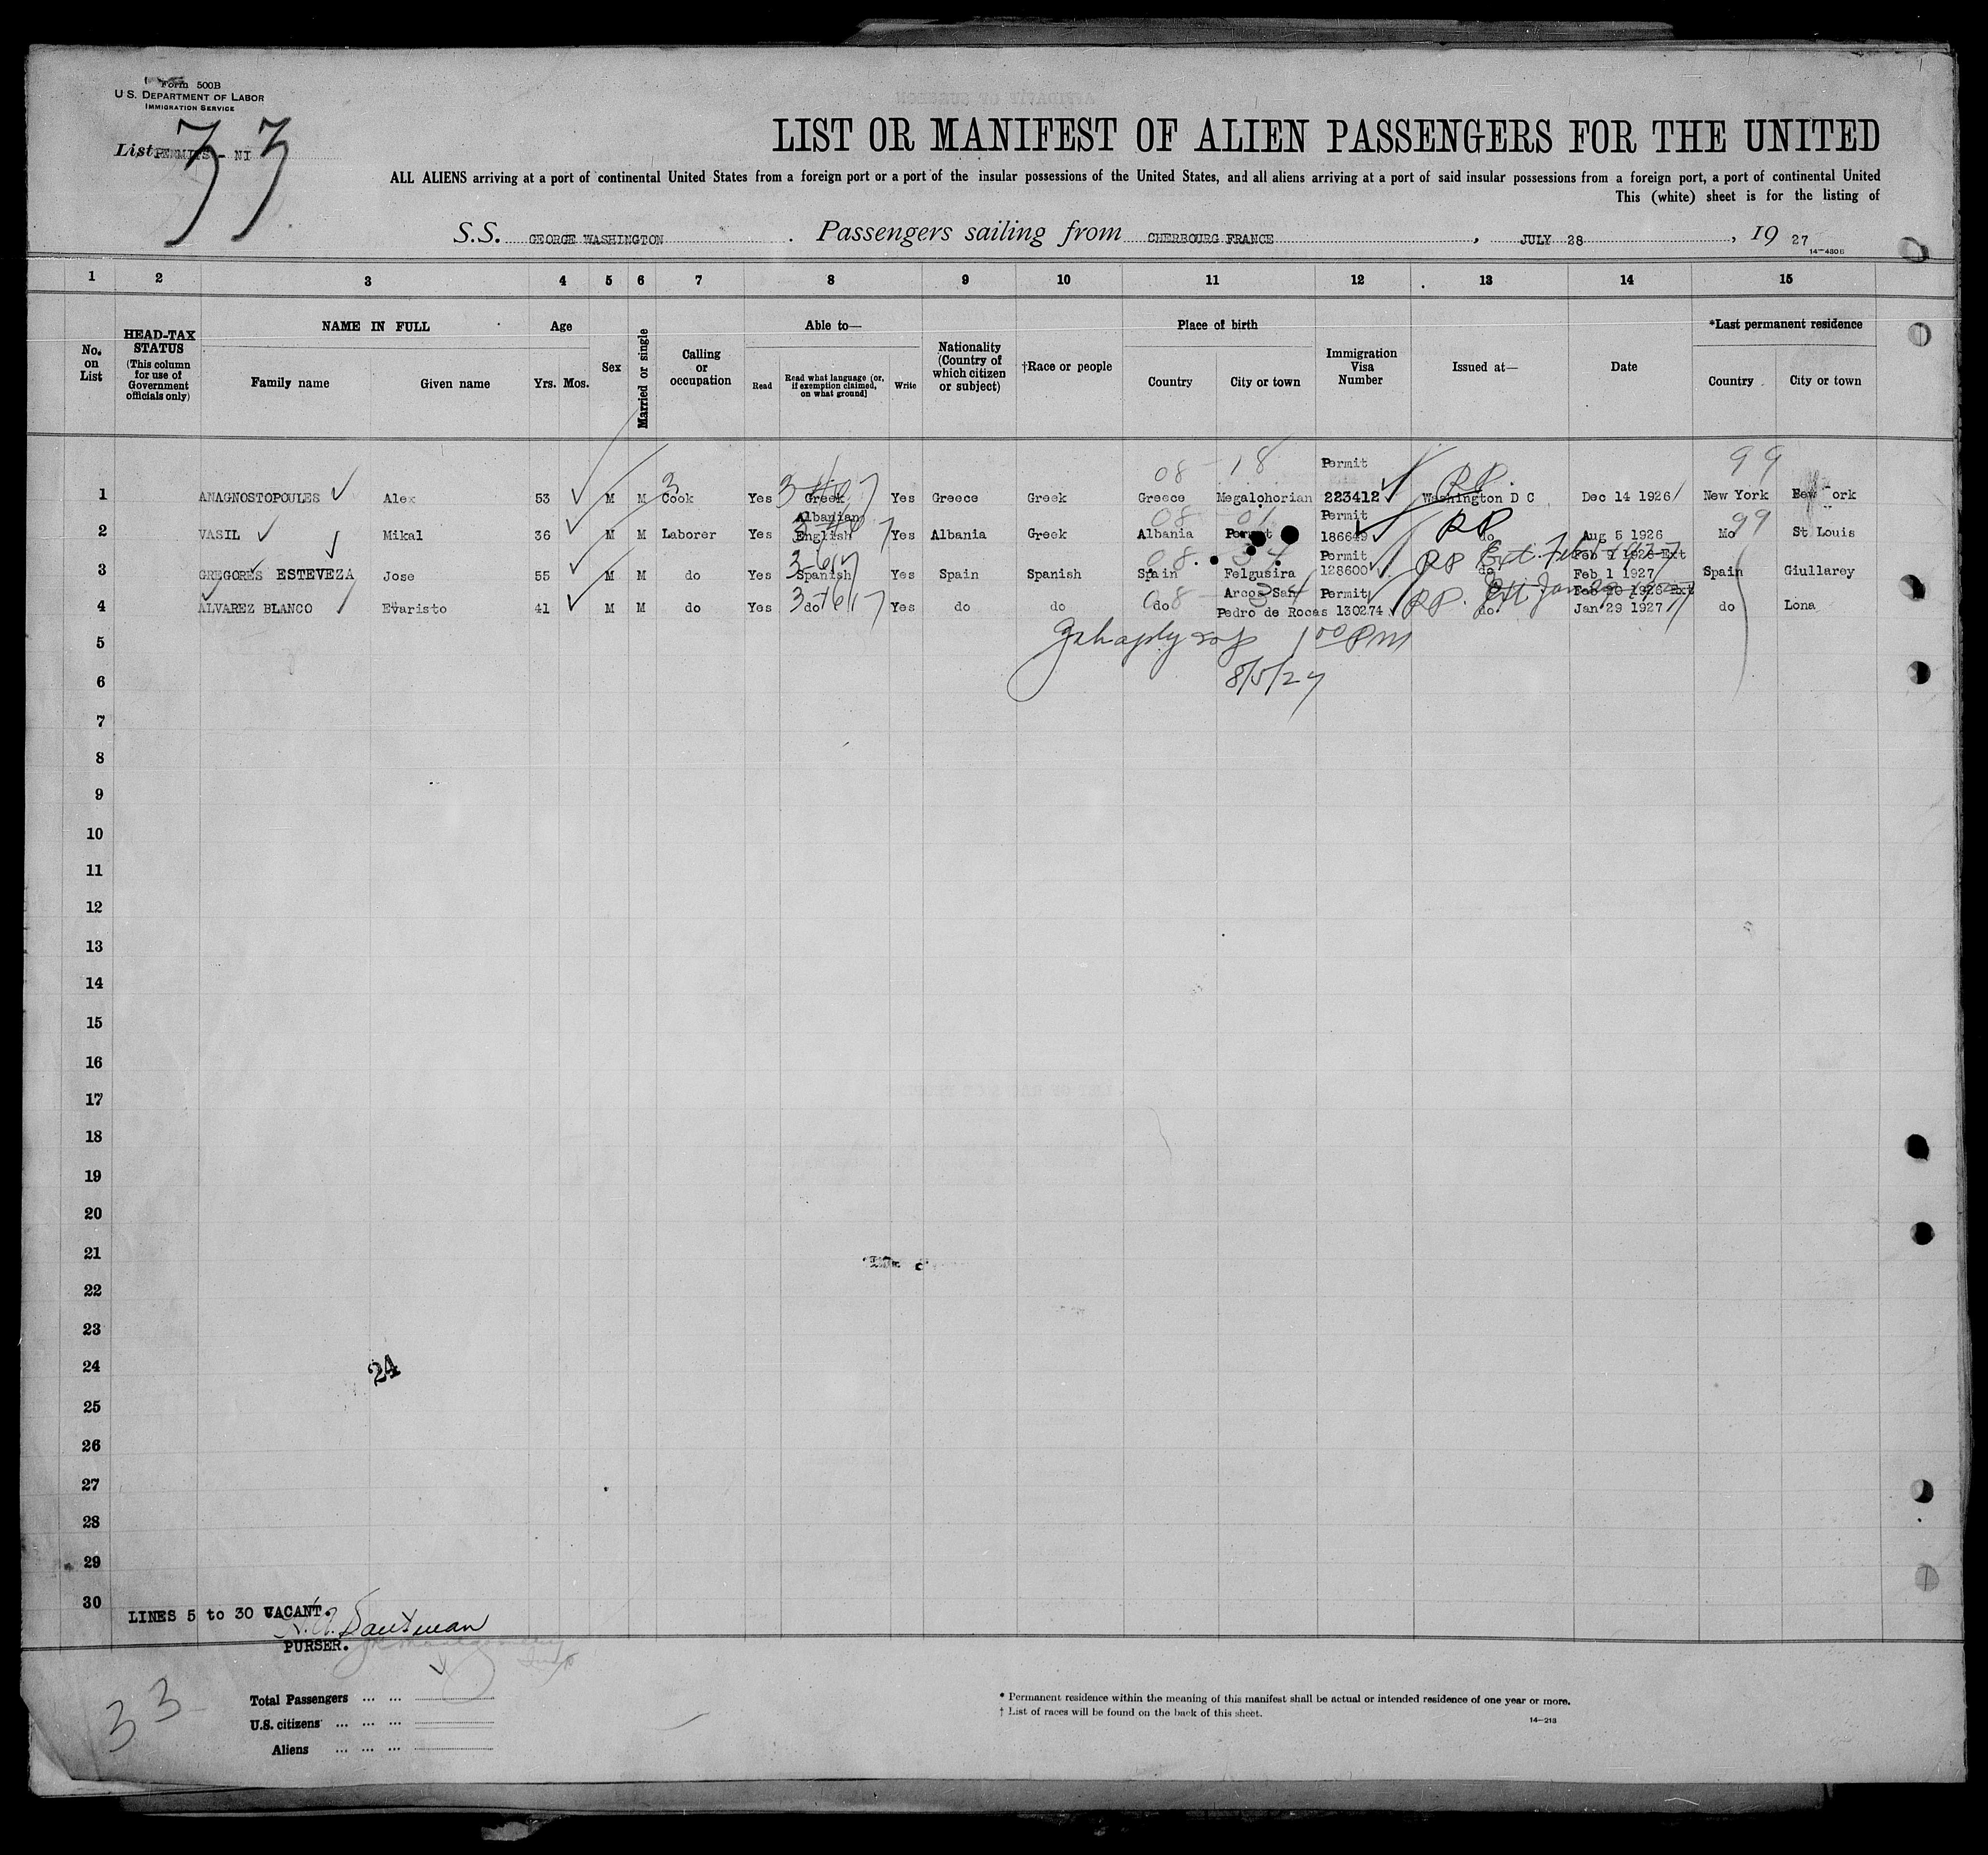 Form 500B
U.S. DEPARTMENT OF LABOR
IMMIGRATION SERVICE
List PERMITS - NI
33
LIST OR MANIFEST OF ALIEN PASSENGERS FOR THE UNITED
ALL ALIENS arriving at a port of continental United States from a foreign port or a port of the insular possessions of the United States, and all aliens arriving at a port of said insular possessions from a foreign port, a port of continental United
This (white) sheet is for the listing of
S.S. GEORGE WASHINGTON. Passengers sailing from CHERBOURG FRANCE, JULY 28, 19 27
14—4306
1 2 3 4 5 6 7 8 9 10 11 12 13 14 15
No. on List
HEAD-TAX STATUS (This column for use of Government officials only)
NAME IN FULL
Family name Given name
Age
Yrs. Mos.
Sex
Married or single
Calling or occupation
Able to—
Read Read what language (or, if exemption claimed, on what ground) Write
Nationality (Country of which citizen or subject)
†Race or people
Place of birth
Country City or town
Immigration Visa Number
Issued at—
Date
*Last permanent residence
Country City or town
08 18 Permit RP 99
1 ANAGNOSTOPOULES Alex 53 M M Cook Yes Greek Yes Greece Greek Greece Megalohorian 223412 Washington D C Dec 14 1926 New York New York
Albanian 08 01 Permit RP 99
2 VASIL Mikal 36 M M Laborer Yes English Yes Albania Greek Albania Permet 186649 do Aug 5 1926 Mo St Louis
08 34 Permit RP Ext. Feb 9 1926 Ext
3 GREGORES ESTEVEZA Jose 55 M M do Yes Spanish Yes Spain Spanish Spain Felgusira 128600 do Feb 1 1927 Spain Giullarey
08 34 Arcos San Permit RP. Ext. Jan 29 1927 Feb 20 1926 Ext
4 ALVAREZ BLANCO Evaristo 41 M M do Yes do Yes do do do Pedro de Rocas 130274 do Jan 29 1927 do Lona
5 1 00 PM
6 8/5/27
7
8
9
10
11
12
13
14
15
16
17
18
19
20
21
22
23
24
24
25
26
27
28
29
30
LINES 5 to 30 VACANT.
PURSER.
33
Total Passengers
U.S. citizens
Aliens
* Permanent residence within the meaning of this manifest shall be actual or intended residence of one year or more.
† List of races will be found on the back of this sheet.
14—213